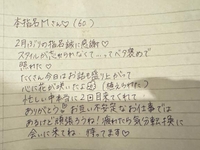 本指名Mさん♡(60)
2月ぶりの指名誠に感謝♡
スタイルがたかられなくてってベタ褒めで
照れた♡
たくさん今日はお話も盛り上がって
心に花が咲いた
忙しい中本当に2回目来てくれて
ありがとう お互い不安定なお仕事では
あるけど頑張ろうね!疲れたら気分転換に
会いに来てね 待ってます♡